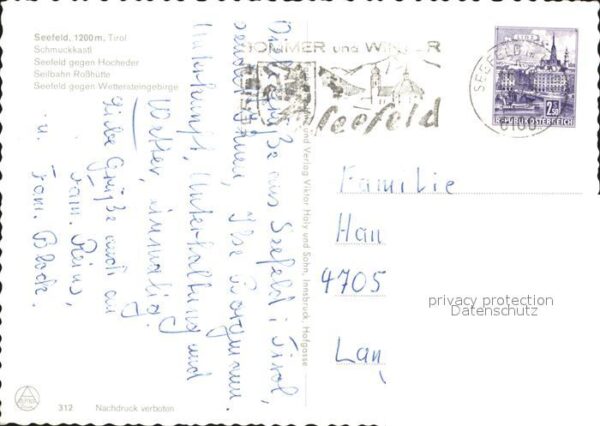 Seefeld, 1200 m, Tirol
Schmuckkastl
Seefeld gegen Hocheder
Seilbahn Roßhütte
Seefeld gegen Wettersteingebirge
SOMMER und WINTER
Seefeld
SEEFELD IN
6100
LINZ
2.50
REPUBLIK ÖSTERREICH
Grüße aus Seefeld i. Tirol,
sendet Ihnen, Ilse
Unterkunft, Unterhaltung und
Wetter, einmalig.
Liebe Grüße auch an
Fam. Reins,
u. Fam. Block.
und Verlag Viktor Holy und Sohn, Innsbruck, Hofgasse
Familie
Han
4705
Lan
privacy protection
Datenschutz
312 Nachdruck verboten